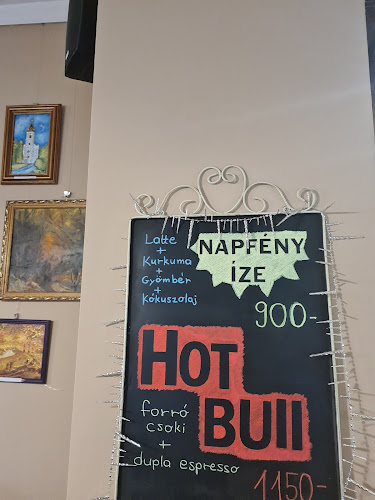 Latte
+
Kurkuma
+
Gyömbér
+
Kókuszolaj
NAPFÉNY
ÍZE
900-
HOT
BUll
forró
csoki
+
dupla espresso
1150-